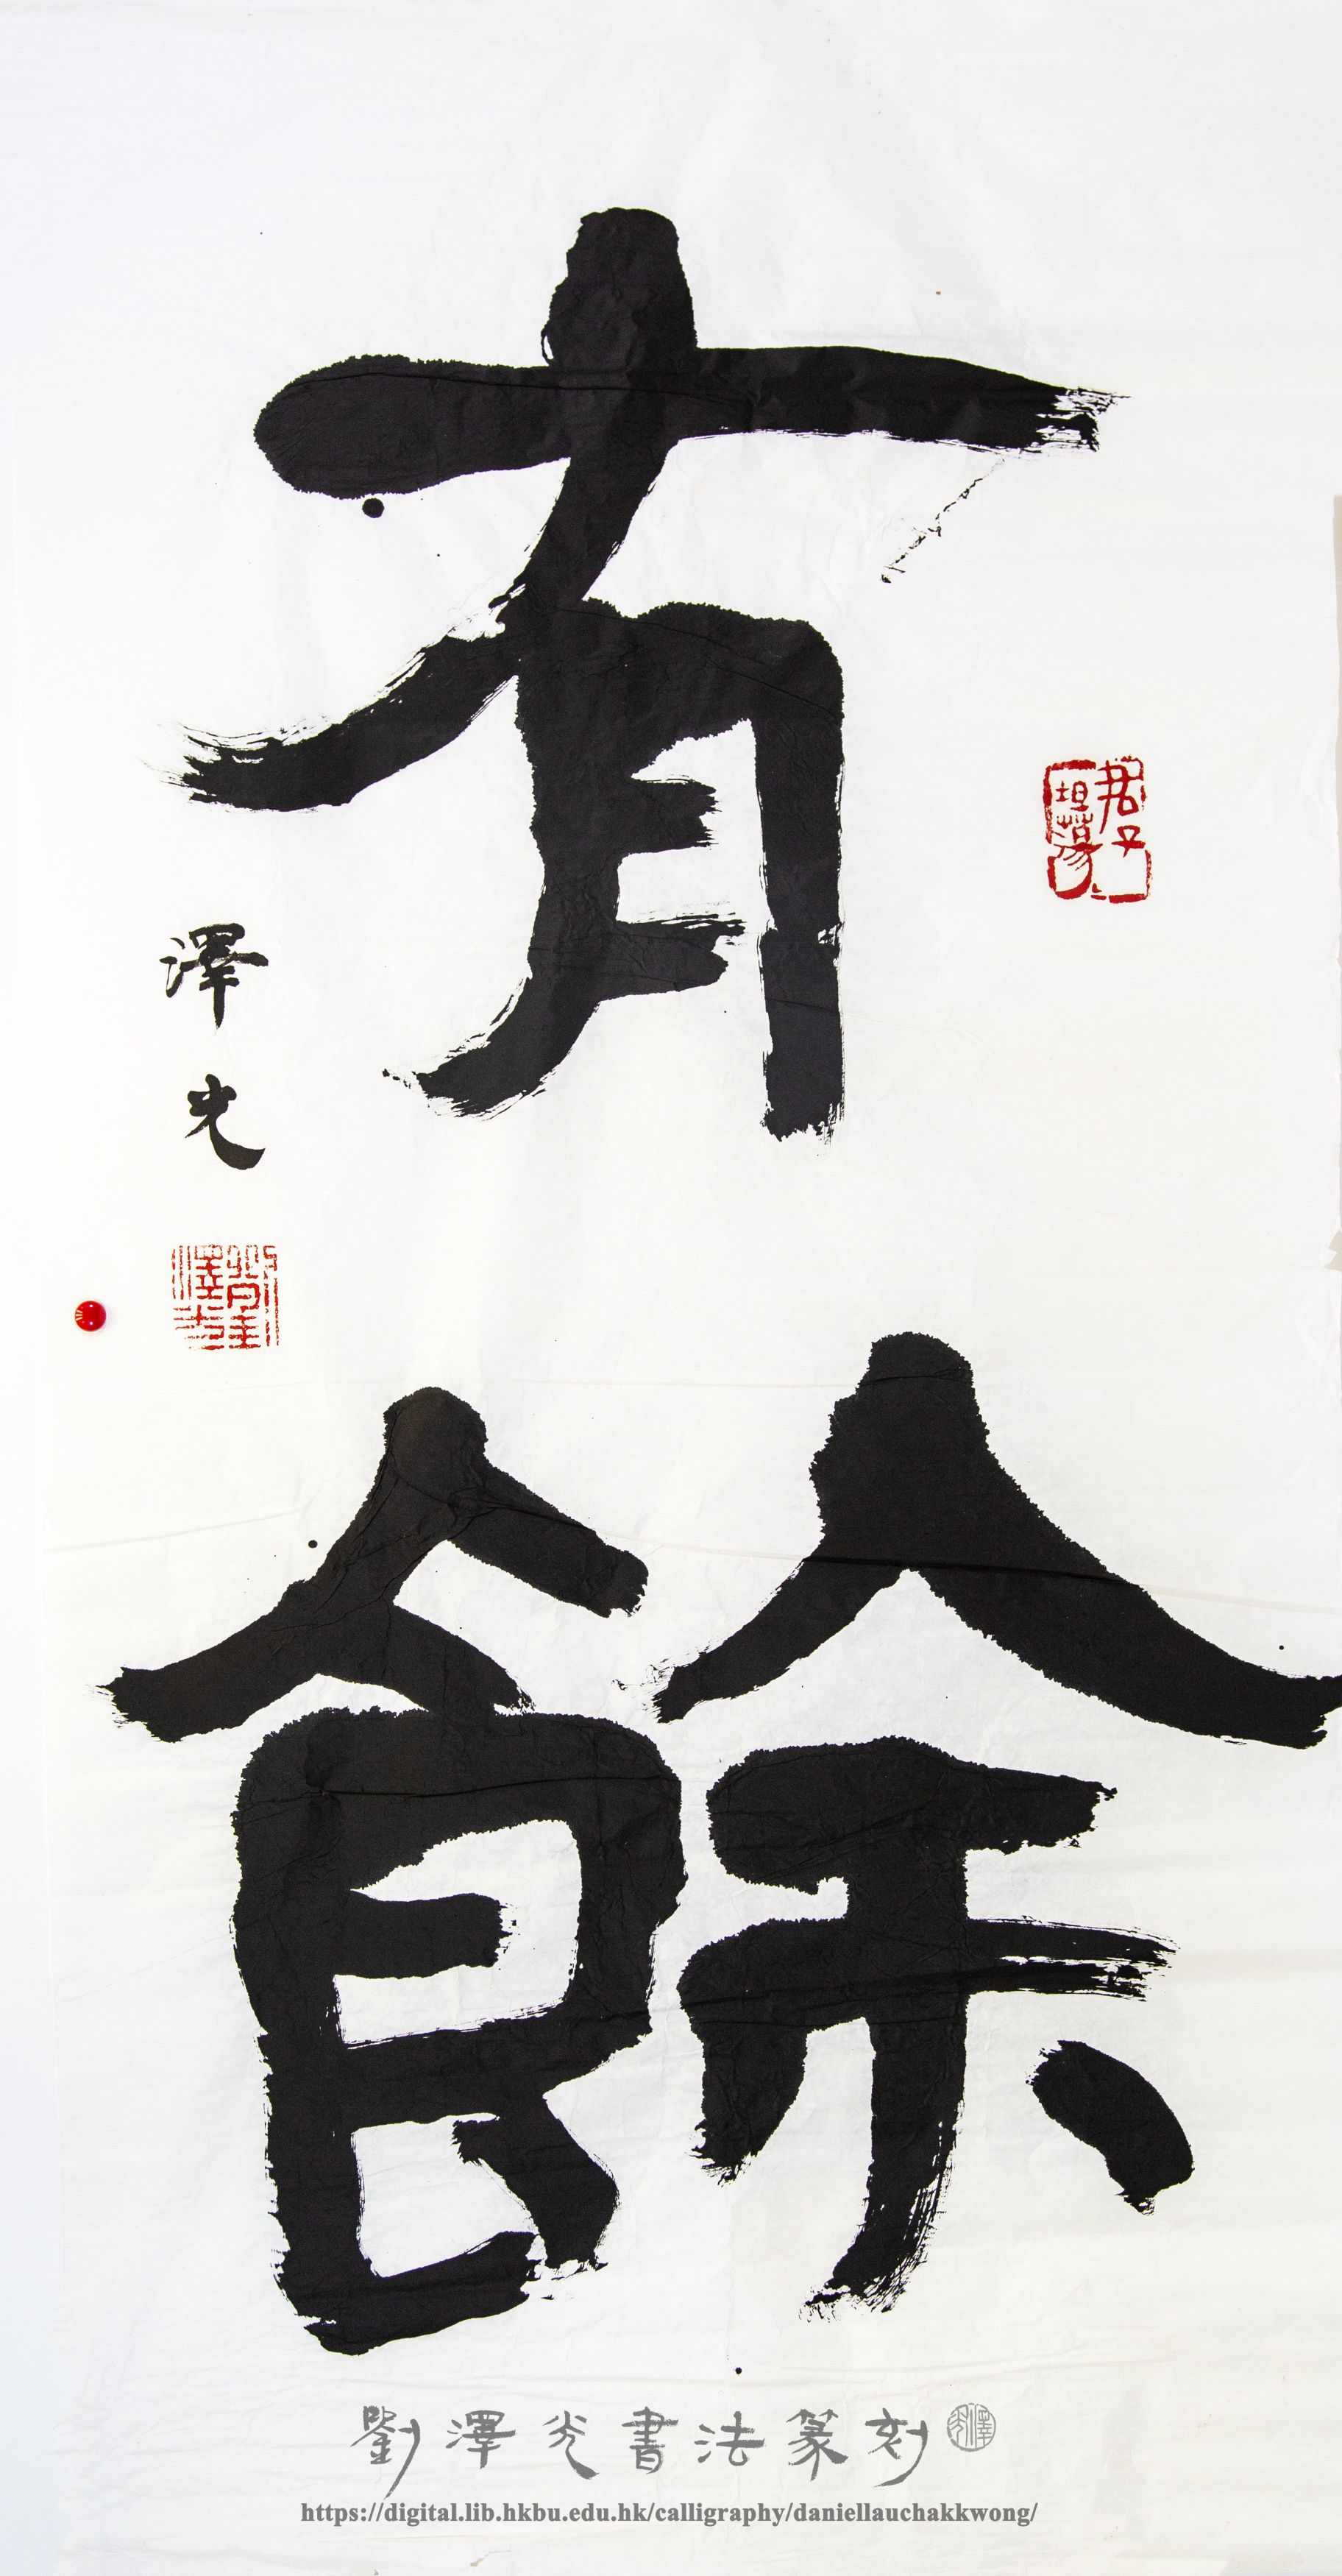 有餘
君子坦蕩蕩
澤光
劉澤光
劉澤光書法篆刻
https://digital.lib.hkbu.edu.hk/calligraphy/daniellauchakkwong/